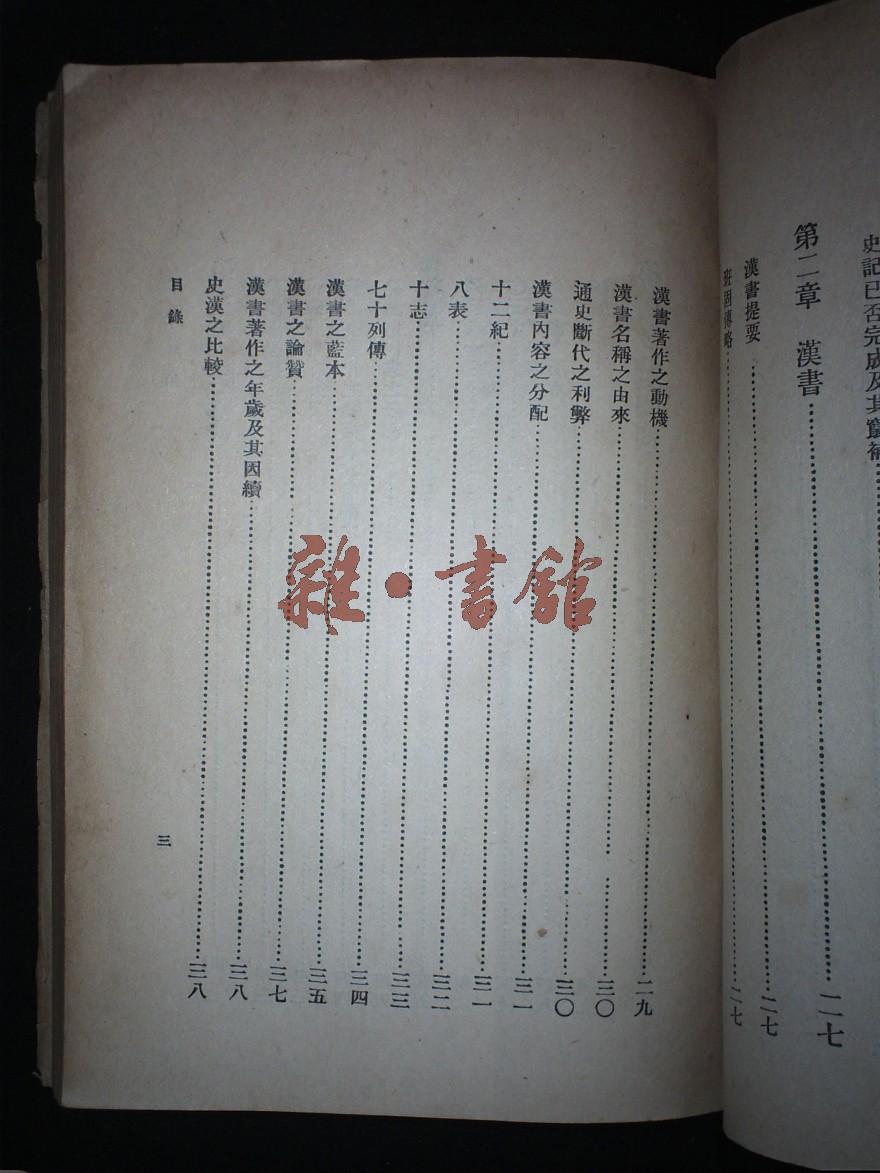 史記已否完成及其竄補
第二章 漢書……二七
漢書提要……二七
班固傳略……二七
漢書著作之動機……二九
漢書名稱之由來……三〇
通史斷代之利弊……三〇
漢書內容之分配……三一
十二紀……三一
八表……三二
十志……三三
七十列傳……三四
漢書之藍本……三五
漢書之論贊……三七
漢書著作之年歲及其因續……三八
史漢之比較……三八
目錄
三
雜·書館